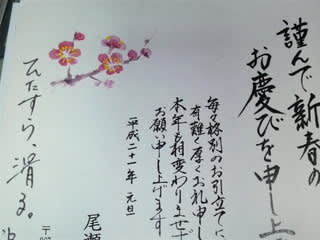 謹んで新春の
お慶びを申し上
毎々格別のお引立てに
有難く厚くお礼申し
本年も相変わりませず
お願い申し上げます
平成二十一年 元旦
尾瀬
ひたすら、滑る。